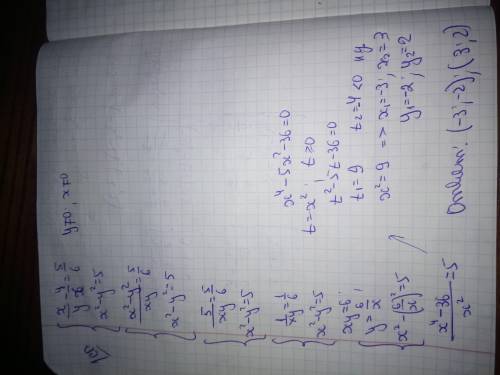 √3
{ x/y - y/x = 5/6   y≠0; x≠0
x²-y²=5
{ x²-y²/xy = 5/6
x²-y²=5
{ 5/xy = 5/6
x²-y²=5
{ 1/xy = 1/6
x²-y²=5
{ xy=6;
y=6/x
x²-(6/x)²=5
x⁴-36/x² =5
x⁴-5x²-36=0
t=x²; t≥0
t²-5t-36=0
t₁=9 t₂=-4<0 ну
x²=9 => x₁=-3; x₂=3
y₁=-2; y₂=2
Ответ: (-3;-2); (3;2)